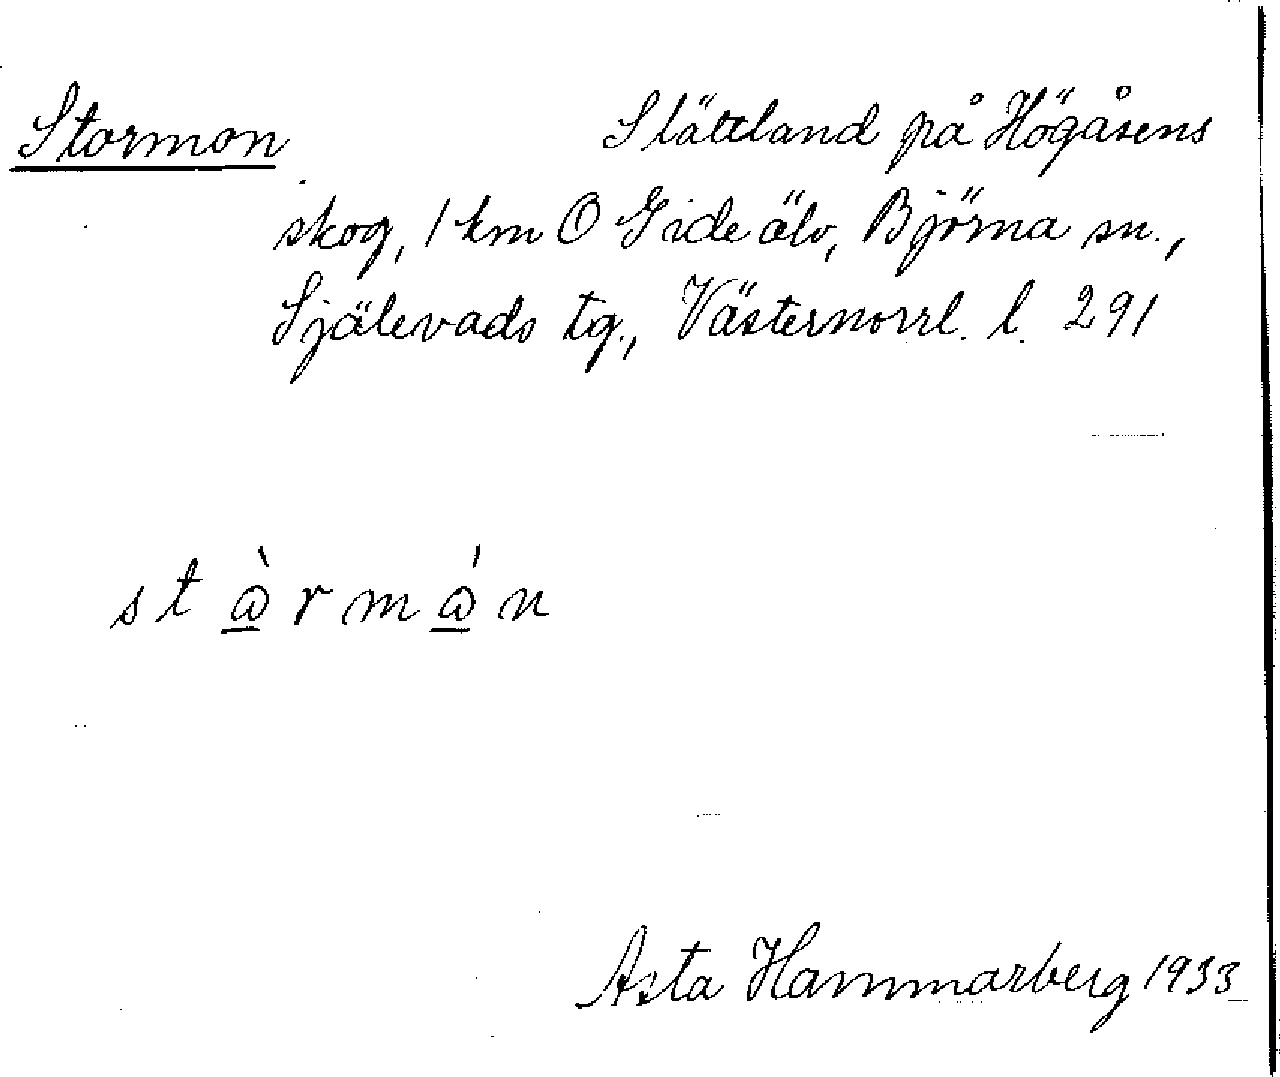 Stormon Slättland på Högåsens
skog, 1 km O Gide älv, Björna sn.,
Själevads tg., Västernorrl. l. 291
st<u>ὼ</u>rm<u>ώ</u>n
Asta Hammarberg 1933